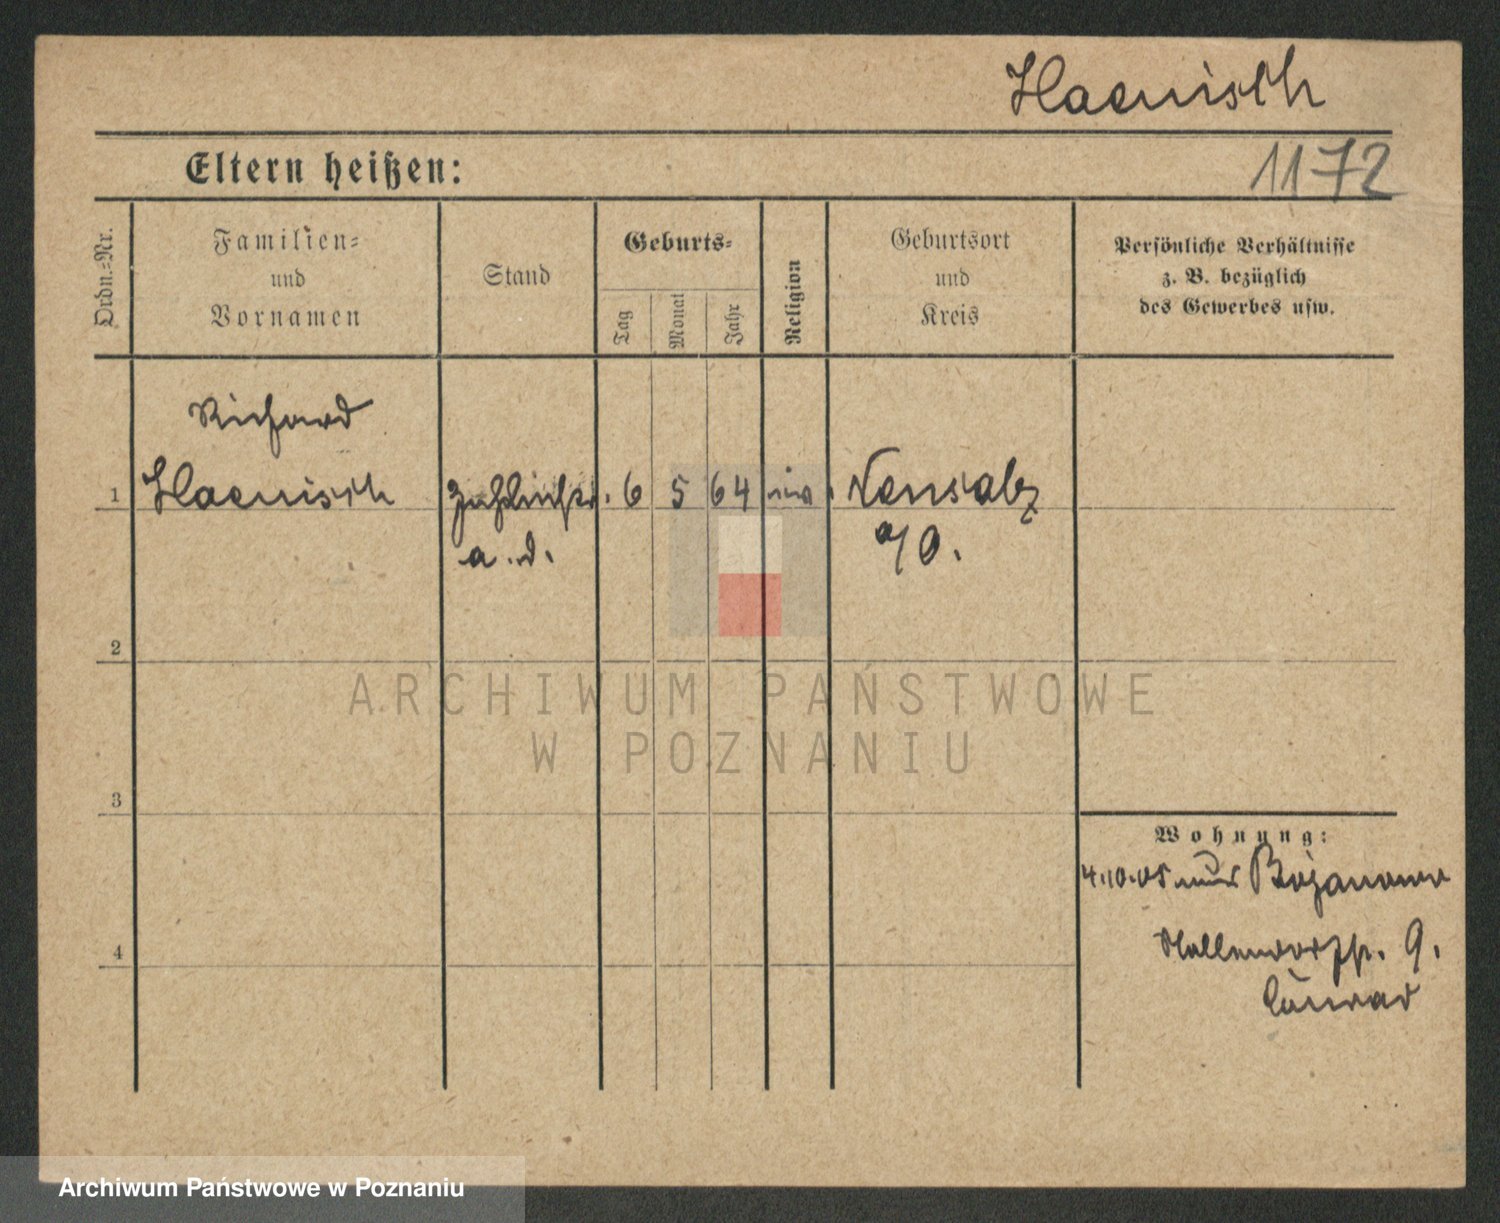 Haenisch
Eltern heißen:
1172
Ordn.=Nr.
Familien=
und
Vornamen
Stand
Geburts=
Tag
Monat
Jahr
Religion
Geburtsort
und
Kreis
Persönliche Verhältnisse
z. B. bezüglich
des Gewerbes usw.
Richard
1 Haenisch 6 5 64 Neusalz
a. D. a/O.
2
ARCHIWUM PAŃSTWOWE
W POZNANIU
3
Wohnung:
4.10.05 aus Bojanowo
9.
Conrad
4
Archiwum Państwowe w Poznaniu